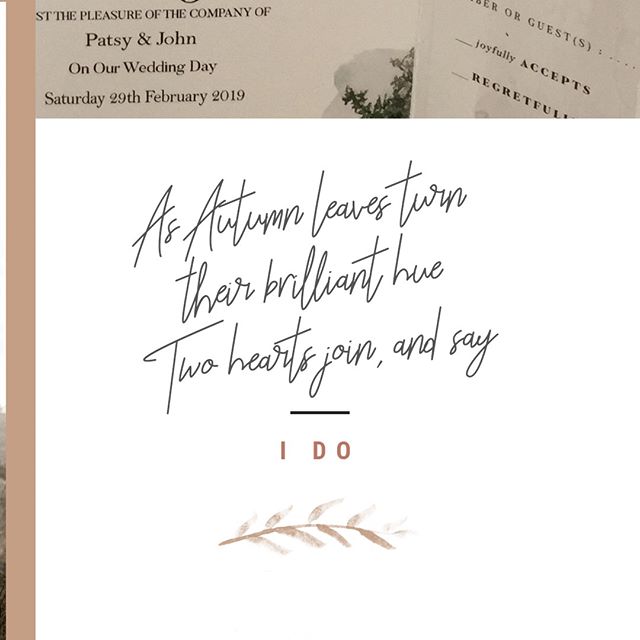 ST THE PLEASURE OF THE COMPANY OF
Patsy & John
On Our Wedding Day
Saturday 29th February 2019
OR GUEST(S) : . . . . .
— joyfully ACCEPTS
— 
As Autumn leaves turn
their brilliant hue
Two hearts join, and say
I DO